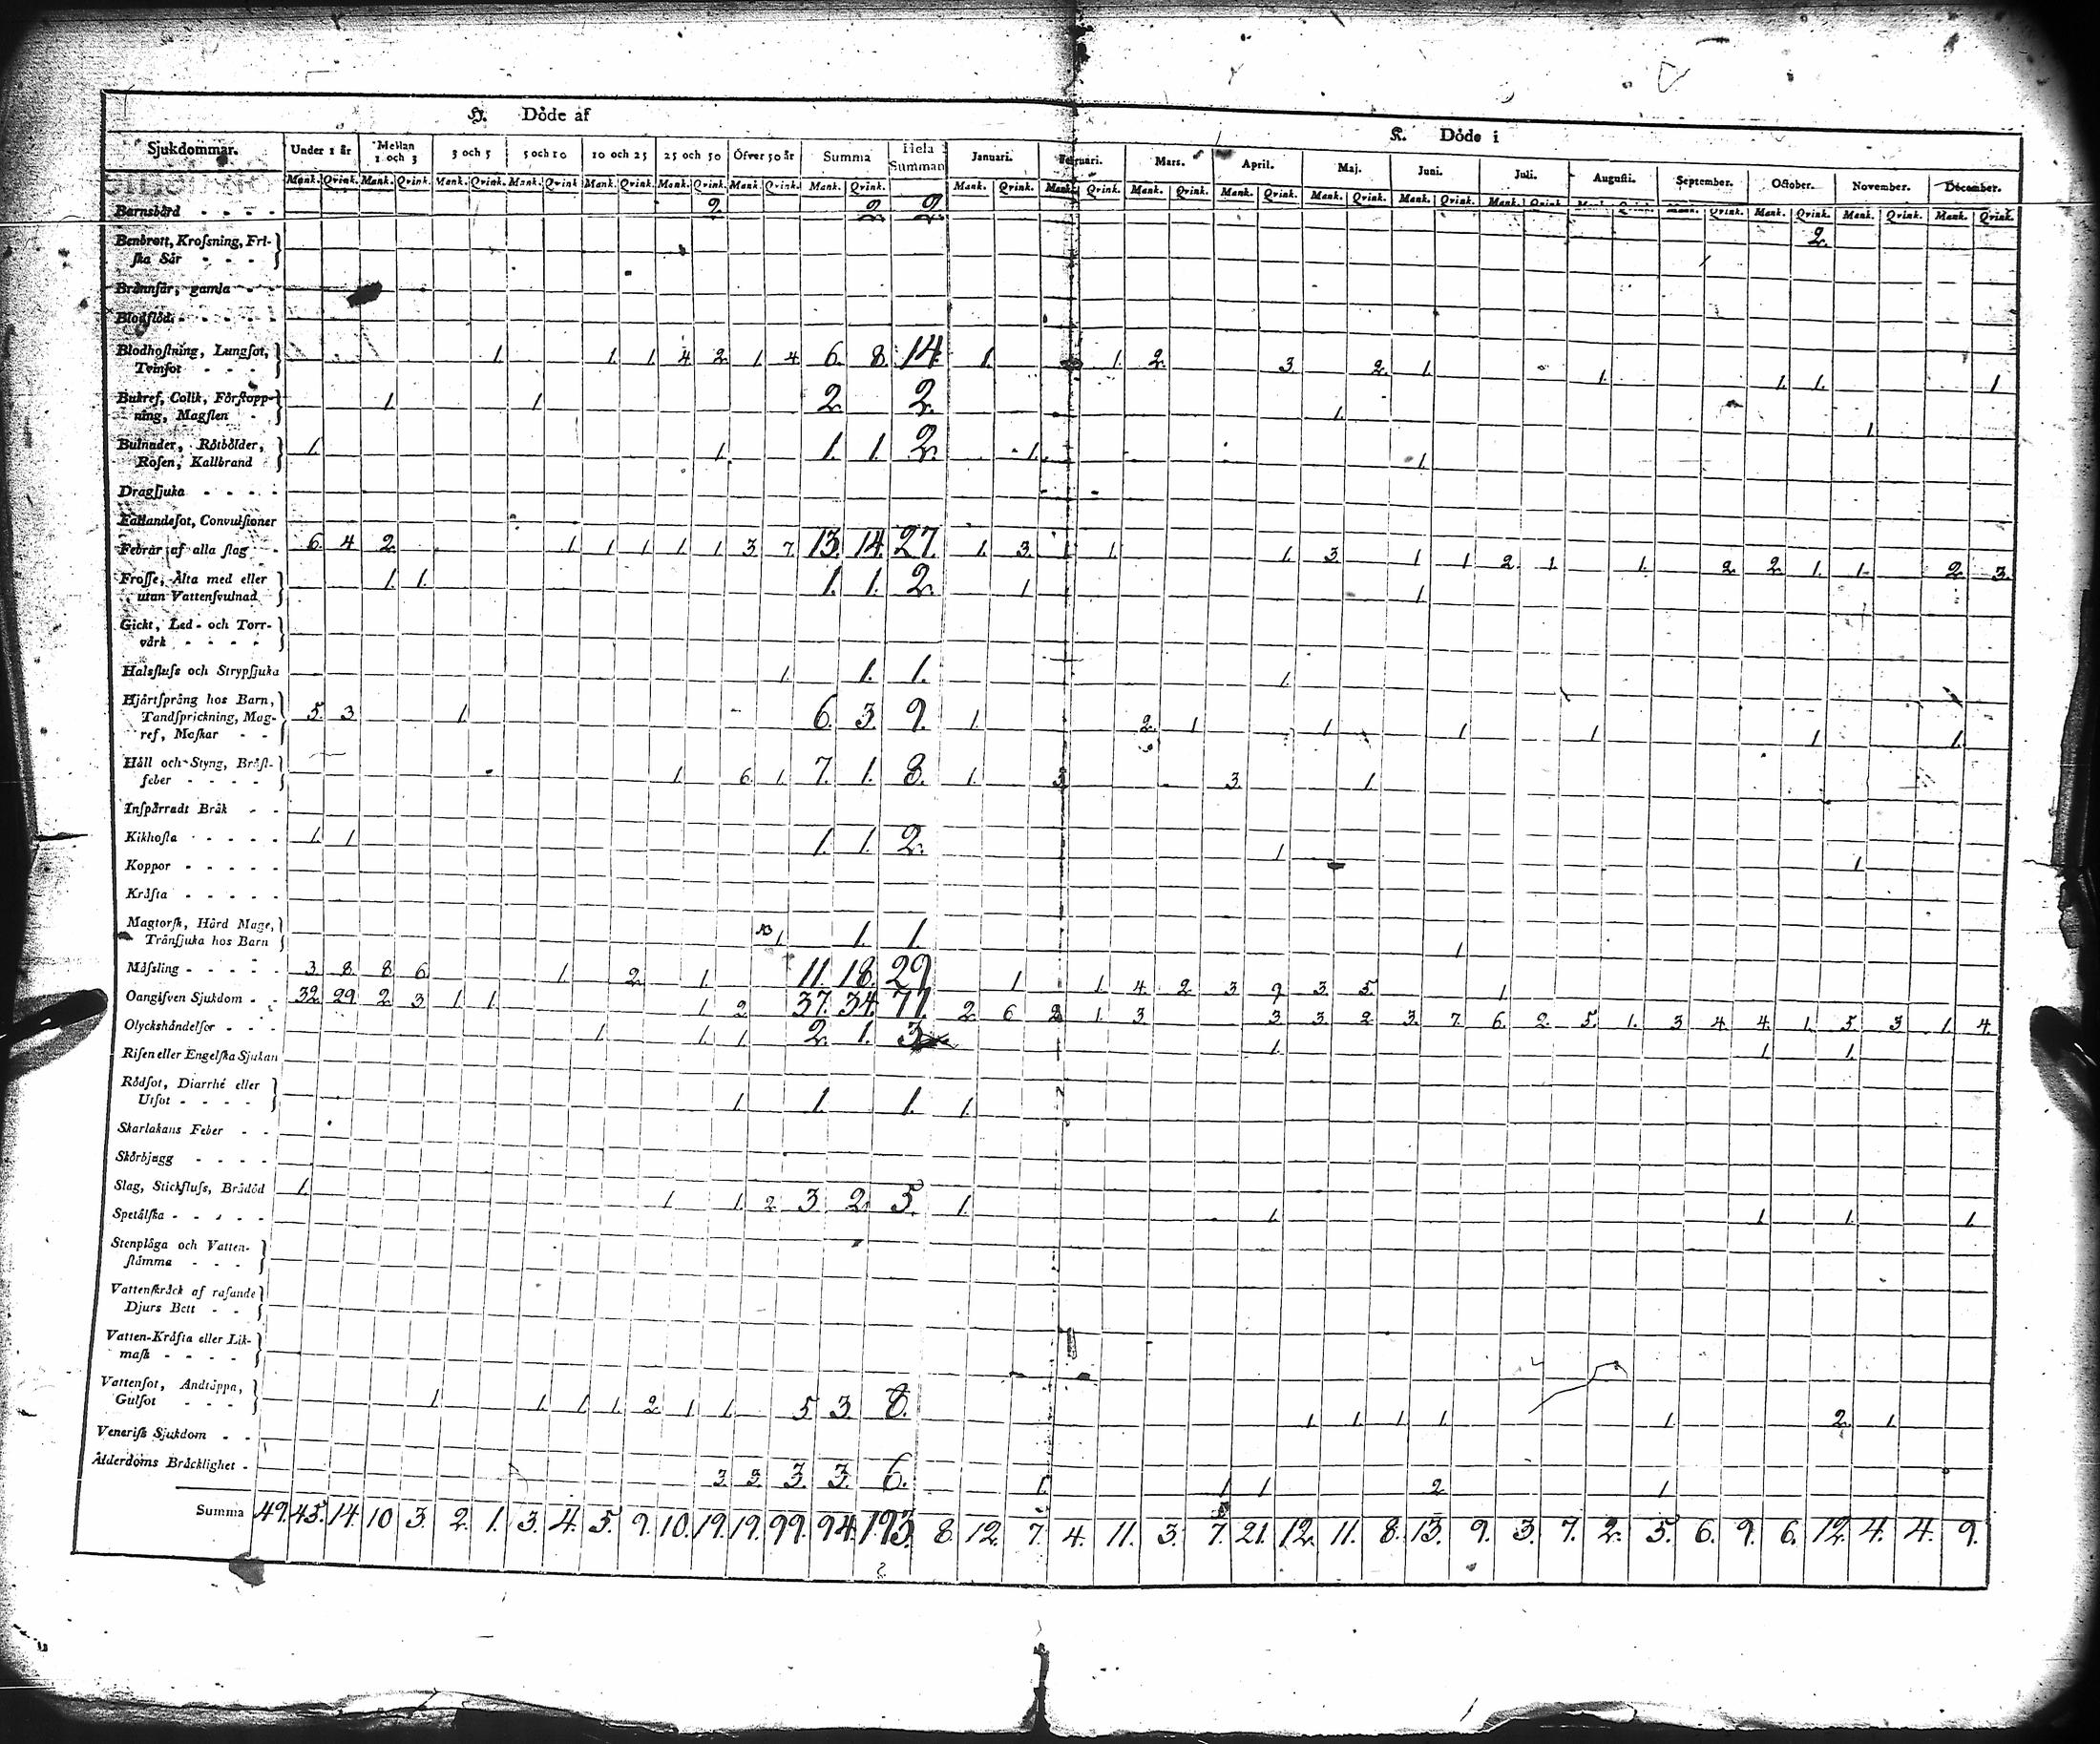 H. Döde af
K. Döde i
Sjukdommar. Under 1 år Mellan 1 och 3 3 och 5 5 och 10 10 och 25 25 och 50 Öfver 50 år Summa Hela Summan Januari. Februari. Mars. April. Maj. Juni. Juli. Augusti. September. October. November. December.
Mank. Qvink. Mank. Qvink. Mank. Qvink. Mank. Qvink. Mank. Qvink. Mank. Qvink. Mank. Qvink. Mank. Qvink. Mank. Qvink. Mank. Qvink. Mank. Qvink. Mank. Qvink. Mank. Qvink. Mank. Qvink. Mank. Qvink. Mank. Qvink. Mank. Qvink. Mank. Qvink. Mank. Qvink.
Barnsbörd - - - - 2. 2. 2. 2.
Benbrott, Krosning, Fri-
ska Sår - - -
Brännsår, gamla - -
Blodflöd - - - - -
Blodhostning, Lungsot,
Tvinsot - - - 1. 1. 1. 4. 2. 1. 4. 6. 8. 14. 1. 1. 2. 3. 2. 1. 1. 1. 1. 1.
Bukref, Colik, Förstopp-
ning, Magsten - 1. 1. 2. 2. 1. 1.
Bulnader, Rötbölder,
Rosen, Kallbrand 1. 1. 1. 1. 2. 1. 1.
Dragsjuka - - - -
Fallandesot, Convulsioner
Febrar af alla slag - 6. 4 2. 1 1 1 1 1. 1 3. 7. 13. 14. 27. 1. 3. 1 1. 1. 3. 1 1 2. 1. 1. 2. 2. 1. 1. 2. 3.
Frossa, Älta med eller
utan Vattensvulnad 1. 1. 1. 1. 2. 1 1
Gickt, Led- och Torr-
värk - - - -
Halsfluss och Strypsjuka 1. 1. 1. 1.
Hjärtsprång hos Barn,
Tandsprickning, Mag-
ref, Maskar - - 5. 3. 1 6. 3. 9. 1. 2. 1 1 1 1 1 1.
Håll och Styng, Bröst-
feber - - - - 1. 6. 1. 7. 1. 8. 1. 3. 3. 1.
Inspärradt Bråk - -
Kikhosta - - - - - 1. 1 1. 1. 2. 1 1
Koppor - - - - -
Kräfta - - - - -
Magtorsk, Hård Mage,
Tränsjuka hos Barn 1. 1. 1. 1
Mässling - - - - - 3. 8. 8 6. 1. 2. 1 11. 18. 29. 1 1. 4. 2. 3. 9. 3. 5. 1
Oangifven Sjukdom - - 32. 29. 2. 3. 1. 1. 1. 2. 37. 34. 71. 2. 6. 2. 1. 3. 3. 3. 2. 3. 7. 6. 2. 5. 1. 3 4. 4. 1. 5. 3 1. 4.
Olyckshändelser - - - 1. 1. 1. 2. 1. 3. 1. 1. 1.
Risen eller Engelska Sjukan
Rödsot, Diarrhé eller
Utsot - - - - 1. 1. 1. 1.
Skarlakans Feber - -
Skörbjugg - - - -
Slag, Stickfluss, Brådöd 1. 1. 1. 2. 3. 2. 5. 1. 1. 1. 1. 1.
Spetälska - - - - -
Stenplåga och Vatten-
stämma - - -
Vattenskräck af rasande
Djurs Bett - -
Vatten-Kräfta eller Lik-
mask - - - -
Vattensot, Andtäppa,
Gulsot - - - 1. 1. 1. 1. 2. 1. 1. 5. 3. 8. 1. 1. 1. 1. 1 2. 1.
Venerisk Sjukdom - -
Ålderdoms Bräcklighet - 3. 3. 3. 3. 6. 1. 1 1 2. 1
Summa 49. 45. 14. 10 3. 2. 1. 3. 4. 5. 9. 10. 19. 19. 99. 94. 193. 8. 12. 7. 4. 11. 3. 7. 21. 12. 11. 8. 13. 9. 3. 7. 2. 5. 6. 9. 6. 12. 4. 4. 9.